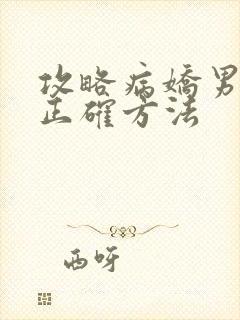 攻略病嬌男
正確方法
西呀